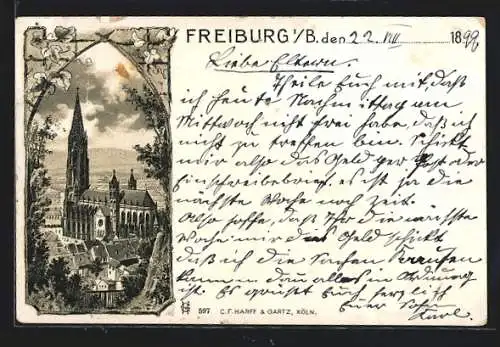 FREIBURG i/B. den 22. VII 1899
Liebe Eltern.
Theile Euch mit, daß
ich heute Nachmittag am
Mittwoch nicht frei habe, daß ich
nicht zu treffen bin. Schickt
mir also das Geld per Post oder
Einschreibebrief, es ist ja die
nächste Woche noch Zeit.
Also hoffe, daß Ihr die nächste
Woche mir das Geld schickt
daß ich die Sachen
kann, dann alles in Ordnung
ist. Es grüßt Euch herzlich
Euer Sohn
Karl.
597 C.F. HARFF & GARTZ, KÖLN.